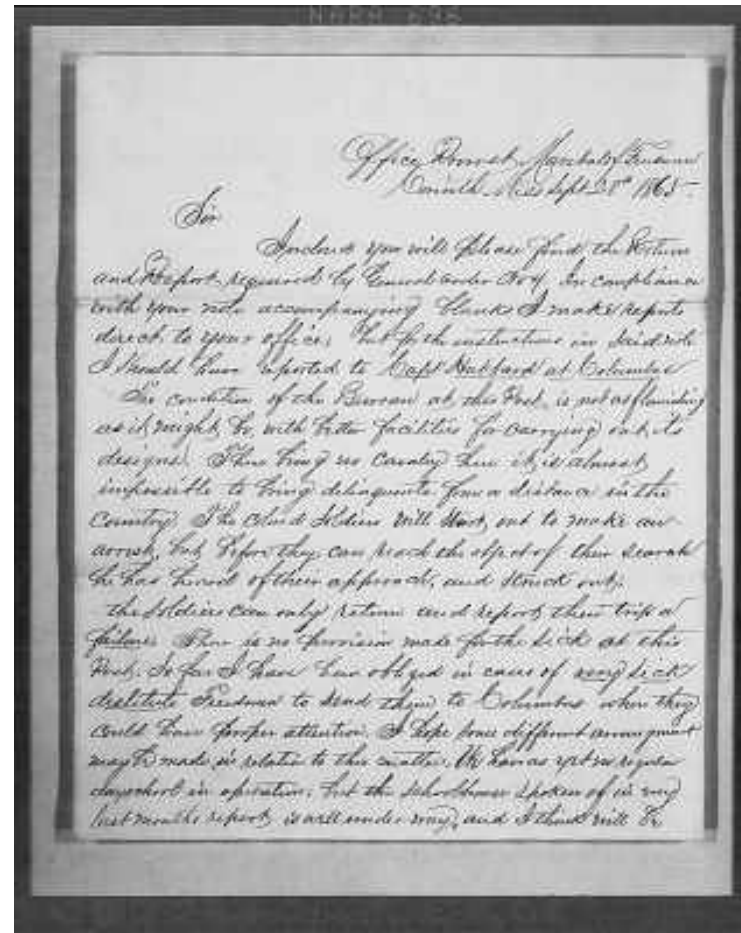 Office Provost Marshal of Freedmen
Corinth Miss Sept 28th 1865.
Sir
Inclosed you will please find the Return
and Report, required by General order No 4, In compliance
with your note accompanying blanks I make reports
direct to your office, but for the instructions in said note
I should have reported to Capt Hubbard at Columbus
The condition of the Bureau at this Post, is not as flourishing
as it might be, with better facilities for carrying out its
designs. There being no Cavalry here it is almost
impossible to bring delinquents from a distance in the
Country. The colored Soldiers will start, out to make an
arrest, but before they can reach the object of their search
he has heard of their approach, and struck out,
the soldiers can only return and report their trip a
failure There is no provision made for the sick at this
Post. So far I have been obliged in cases of very sick
destitute Freedmen to send them to Columbus where they
could have proper attention. I hope some different arrangment
may be made, in relation to this matter. We have as yet no regular
day school in operation, but the schoolhouse spoken of in my
last months report, is well under way, and I think will be